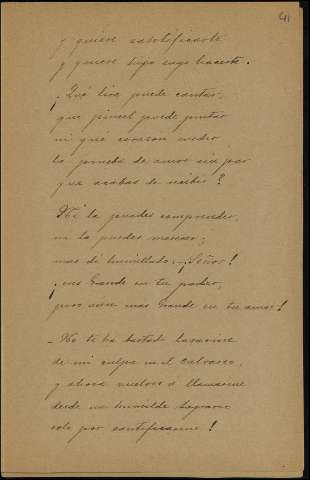 41
y quiere santificarte
y quiere hijo suyo hacerte.
¡Qué lira puede cantar,
que pincel puede pintar
ni qué corazon medir
la prueba de amor sin par
que acabas de recibir?
Ni la puedes comprender,
ni la puedes merecer;
mas di humillado: ¡Señor!
¡eres Grande en tu poder,
pero aún mas Grande en tu amor!
No te ha bastado lavarme
de mi culpa en el Calvario,
y ahora vuelves a llamarme
desde un humilde Sagrario
solo por santificarme!